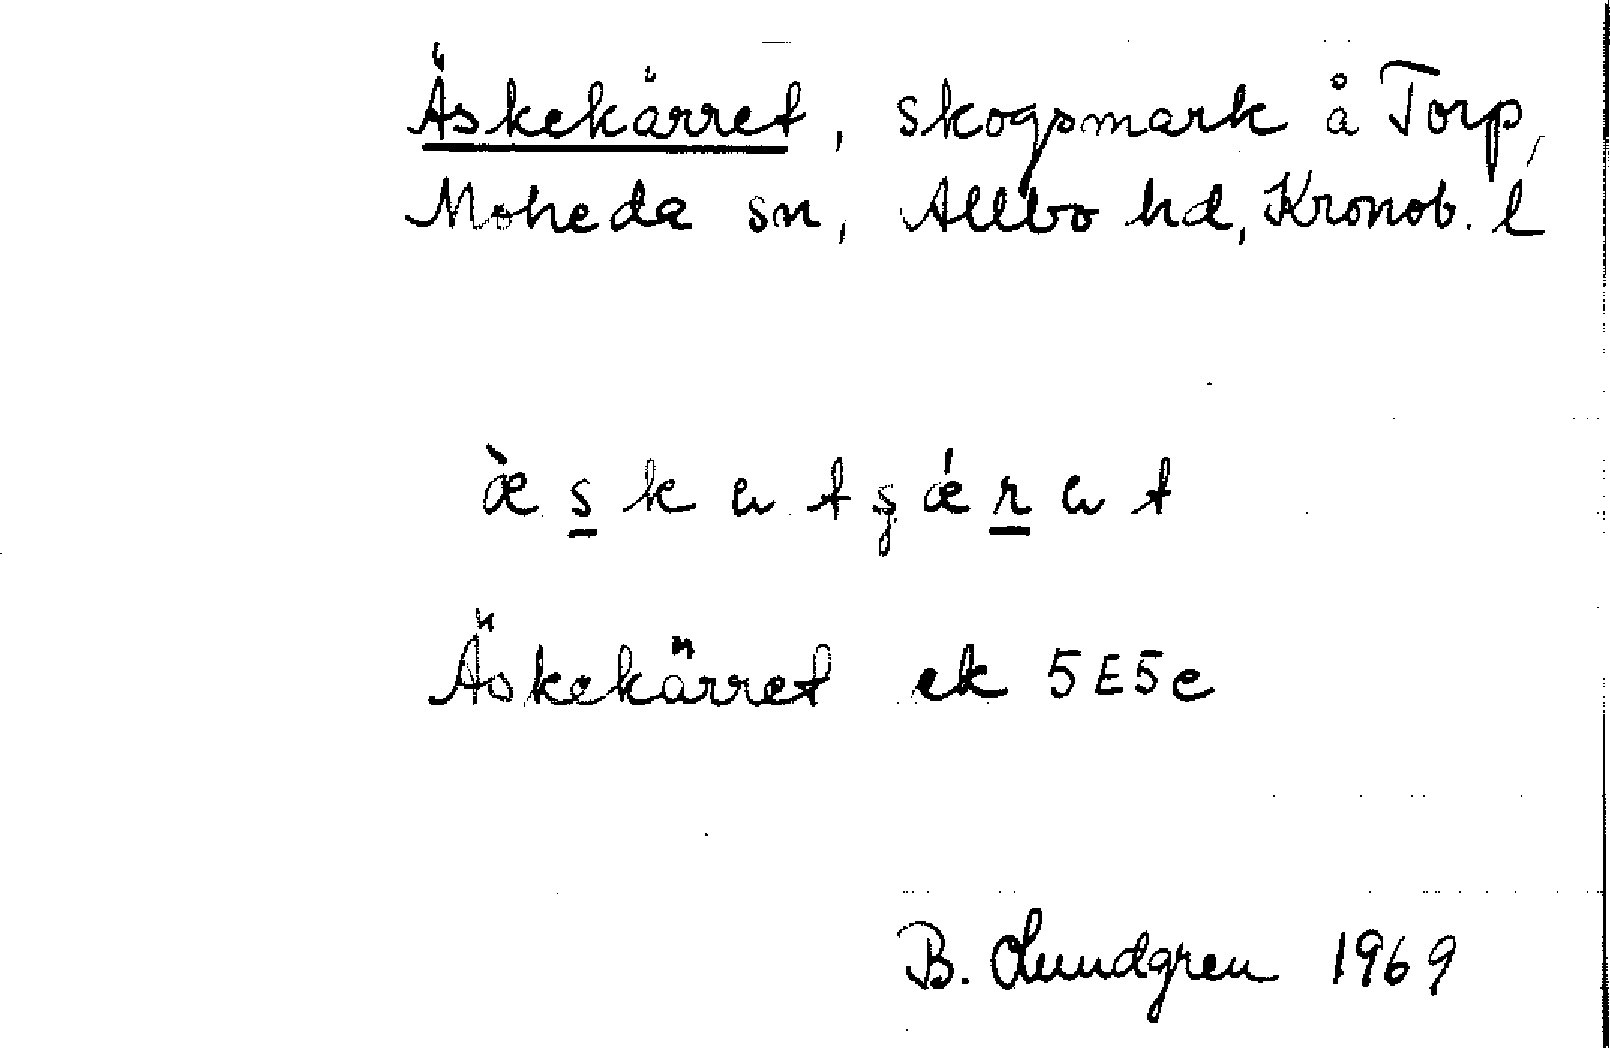 Äskekärret, skogsmark å Torp,
Moheda sn, Allbo hd, Kronob. l
Äskekärret ek 5E5e
B. Lundgren 1969